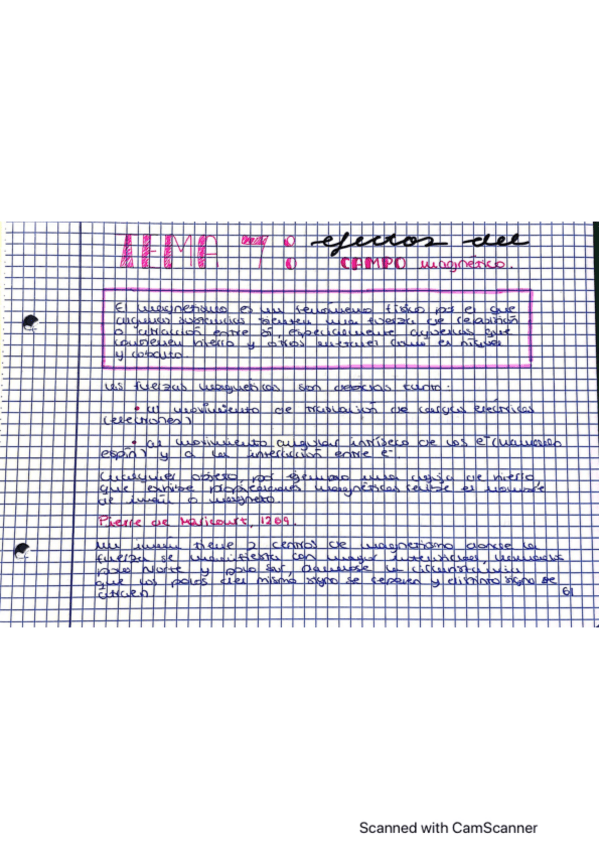 TEMA 7: efectos del
CAMPO magnético.
El magnetismo es un fenómeno físico por el que
algunas sustancias ejercen una fuerza de
o atracción entre sí, especialmente aquellas que
contienen hierro y otros como es níquel
y cobalto.
Las fuerzas magnéticas son debidas tanto:
• al movimiento de traslación de cargas eléctricas
(electrones)
• al movimiento angular intríseco de los e⁻
espín) y a la interacción entre e⁻
Cualquier objeto por ejemplo una aguja de hierro
que exhibe propiedades magnéticas recibe el nombre
de imán o magneto.
Pierre de Maricourt, 1269.
Un imán tiene 2 centros de magnetismo donde la
fuerza se manifiesta con mayor intensidad llamados
polo Norte y polo Sur, la circunstancia
que los polos del mismo signo se repelen y distinto signo se
atraen
61
Scanned with CamScanner